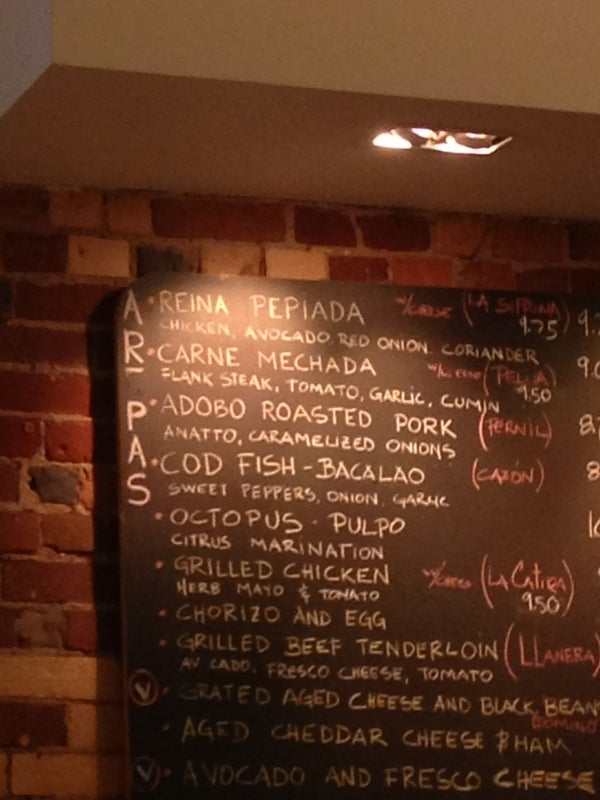 A · REINA PEPIADA w/CHEESE (LA SIFRINA) 9.75
CHICKEN, AVOCADO, RED ONION, CORIANDER
R · CARNE MECHADA (PELUA) 9.50
FLANK STEAK, TOMATO, GARLIC, CUMIN
P · ADOBO ROASTED PORK (PERNIL)
ANATTO, CARAMELIZED ONIONS
A · COD FISH - BACALAO (CAZÓN)
S SWEET PEPPERS, ONION, GARLIC
· OCTOPUS - PULPO
CITRUS MARINATION
· GRILLED CHICKEN w/CHEES (LA CATIRA) 9.50
HERB MAYO & TOMATO
· CHORIZO AND EGG
· GRILLED BEEF TENDERLOIN (LLANERA)
AV CADO, FRESCO CHEESE, TOMATO
V · GRATED AGED CHEESE AND BLACK BEAN
DOMINO
· AGED CHEDDAR CHEESE & HAM
V · AVOCADO AND FRESCO CHEESE